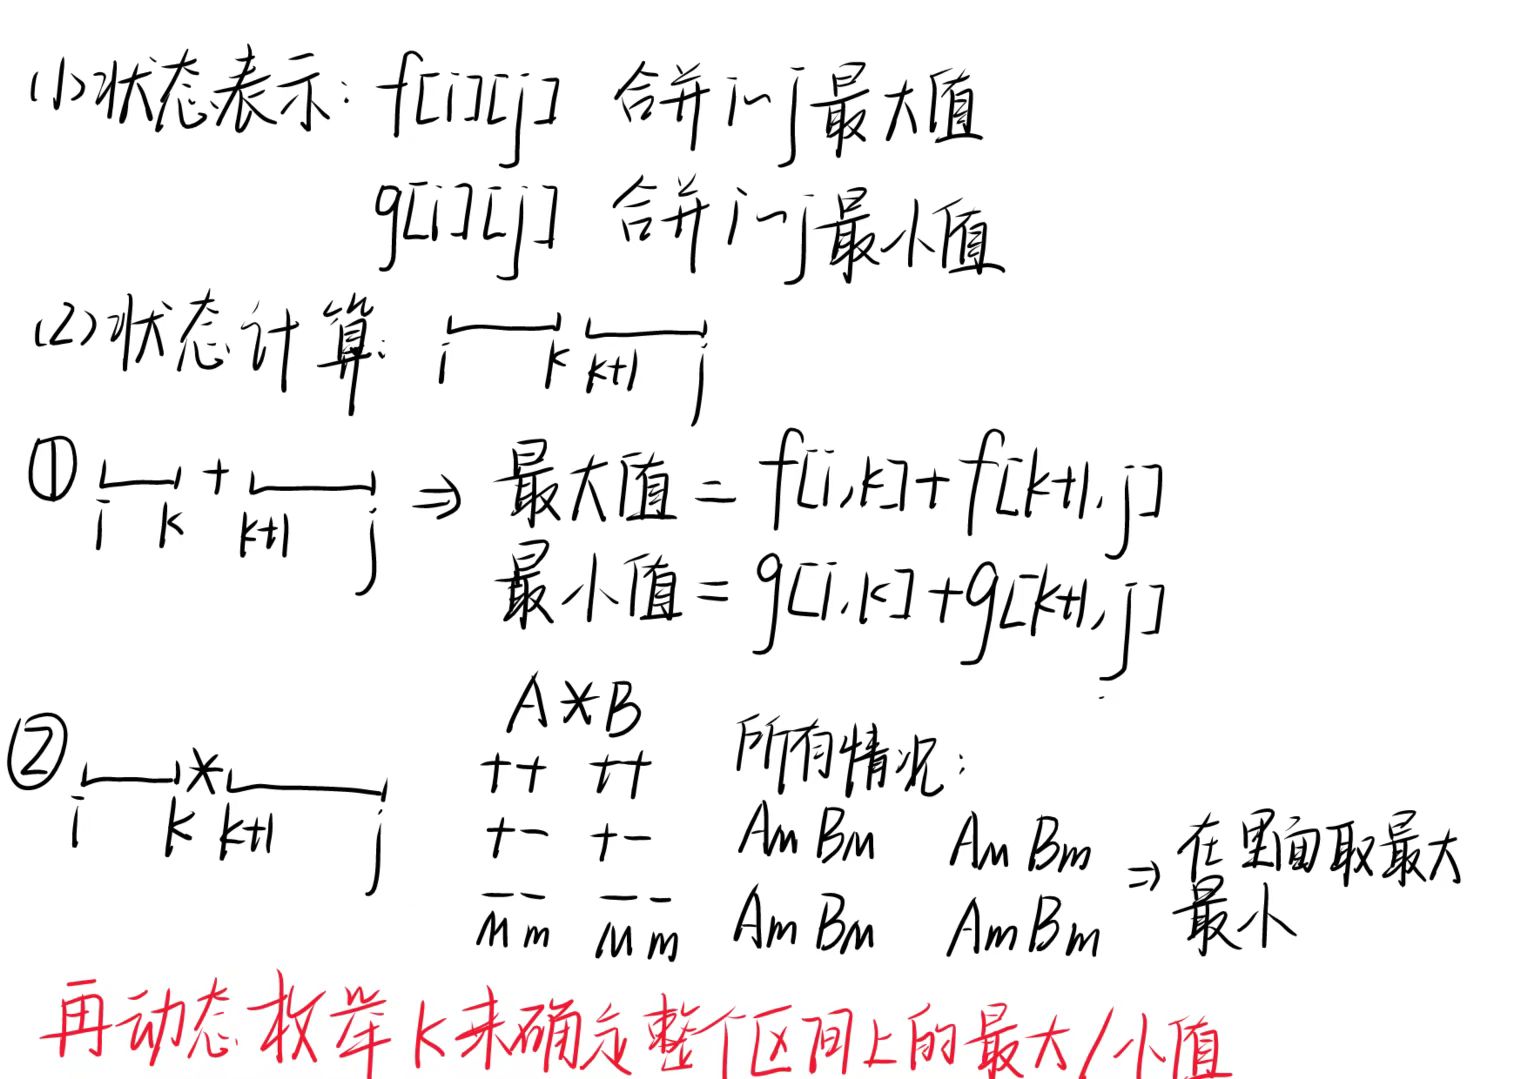 (1)状态表示: f[i][j] 合并i~j最大值
g[i][j] 合并i~j最小值
(2)状态计算: i k k+1 j
① i k + k+1 j ⇒ 最大值 = f[i,k]+f[k+1,j]
最小值 = g[i,k]+g[k+1,j]
② i k * k+1 j
A*B
++ ++
+- +-
-- --
M m M m
所有情况:
AM BM AM Bm
Am BM Am Bm
⇒ 在里面取最大
最小
再动态枚举k来确定整个区间上的最大/小值